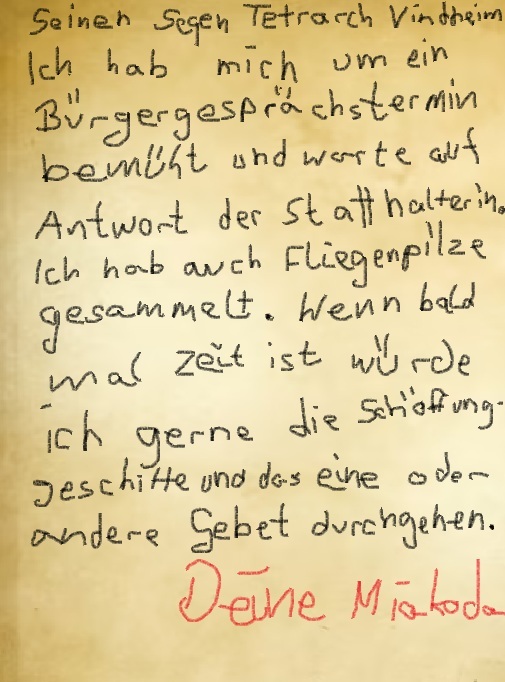 Seinen Segen Tetrarch Vindheim
Ich hab mich um ein
Bürgergesprächstermin
bemüht und warte auf
Antwort der Statthalterin.
Ich hab auch Fliegenpilze
gesammelt. Wenn bald
mal Zeit ist würde
ich gerne die Schöffung-
geschitte und das eine oder
andere Gebet durchgehen.
Deine Miakoda